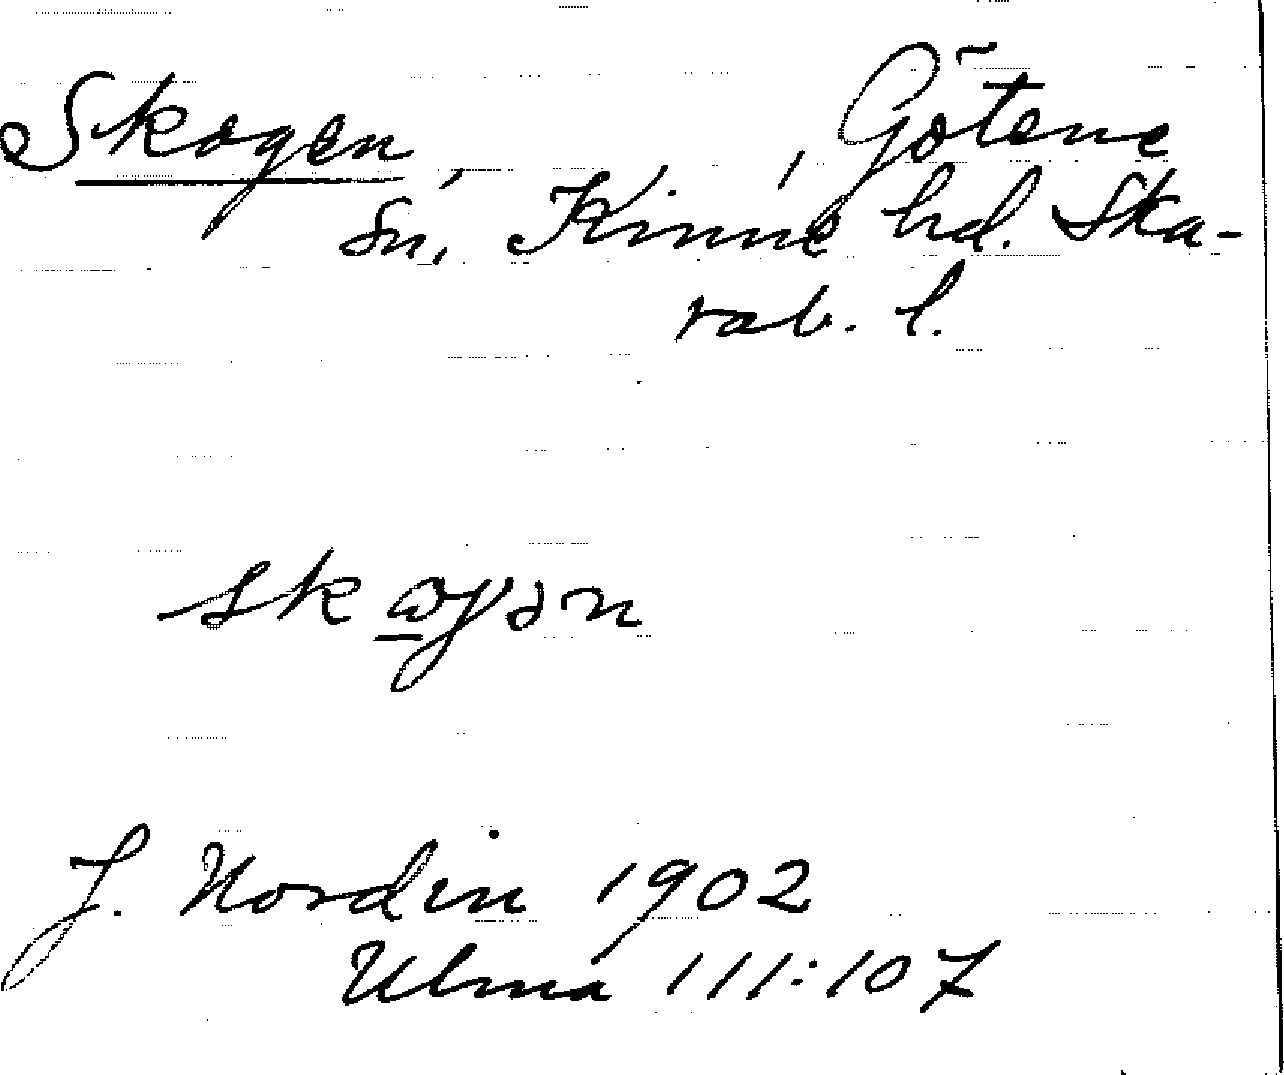 Skogen, Götene
sn, Kinne hd. Ska-
rab. l.
skogən
J. Nordin 1902
Ulma 111:107